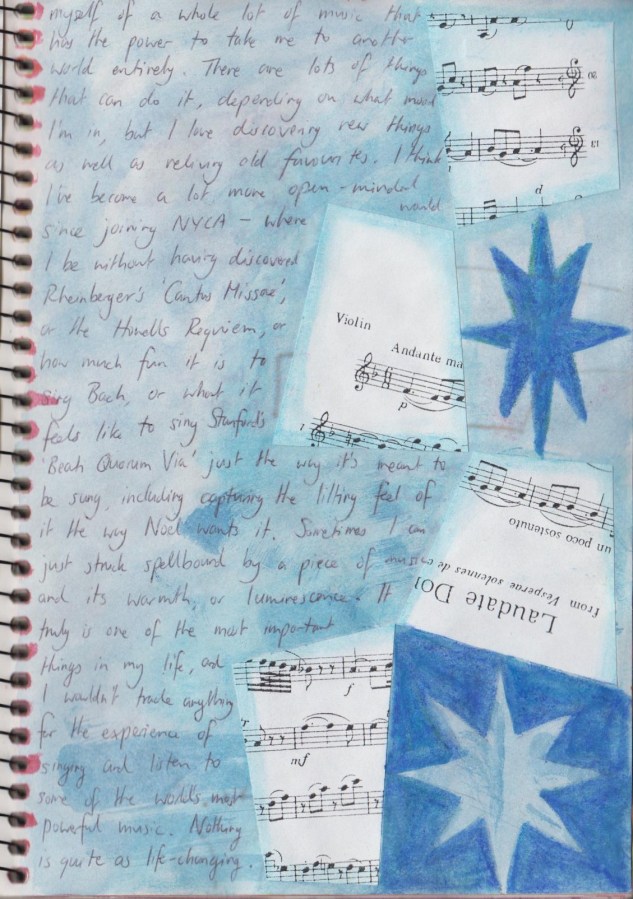 myself of a whole lot of music that
has the power to take me to another
world entirely. There are lots of things
that can do it, depending on what mood
I'm in, but I love discovering new things
as well as reliving old favourites. I think
I've become a lot more open-minded
since joining NYCA - where would
I be without having discovered
Rheinberger's 'Cantus Missae',
or the Howells Requiem, or
how much fun it is to
sing Bach, or what it
feels like to sing Stanford's
'Beati Quorum Via' just the way it's meant to
be sung, including capturing the lilting feel of
it the way Noel wants it. Sometimes I am
just struck spellbound by a piece of music
and its warmth, or luminescence. It
truly is one of the most important
things in my life, and
I wouldn't trade anything
for the experience of
singing and listen to
some of the world's most
powerful music. Nothing
is quite as life-changing.
20
13
p
Violin
Andante ma
p
1
un poco sostenuto
from Vesperae solennes de co
Laudate Do
f
mf